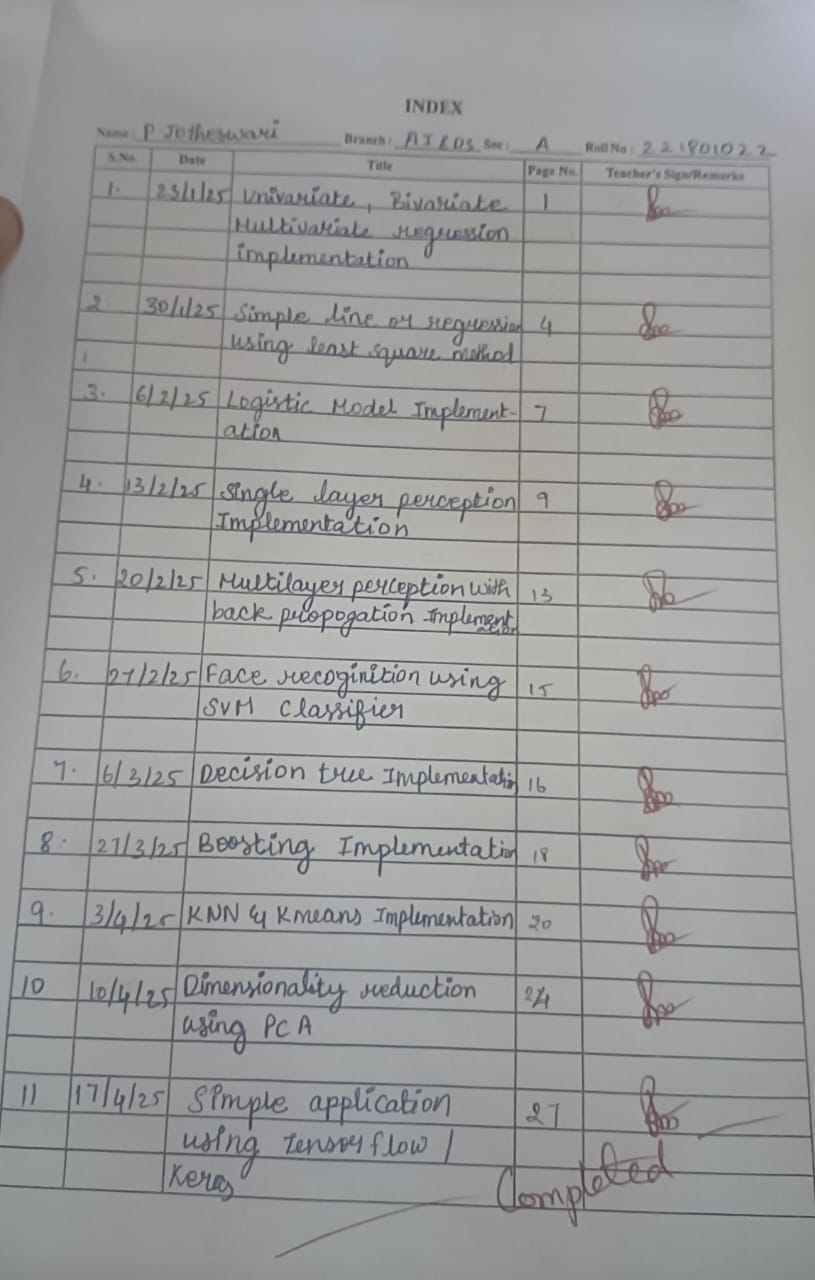 INDEX
Name: P Jotheswari Branch: AI & DS Sec: A Roll No: 221801022
S.No. Date Title Page No. Teacher's Sign/Remarks
1. 23/1/25 Univariate, Bivariate 1
Multivariate regression
implementation
2. 30/1/25 Simple line or regression 4
using least square method
3. 6/2/25 Logistic Model Implement- 7
ation
4. 13/2/25 Single layer perception 9
Implementation
5. 20/2/25 Multilayer perception with 13
back propogation Implement
ation
6. 27/2/25 Face recoginition using 15
SVM Classifier
7. 6/3/25 Decision tree Implementation 16
8. 27/3/25 Boosting Implementation 18
9. 3/4/25 KNN & Kmeans Implementation 20
10 10/4/25 Dimensionality reduction 24
using PCA
11 17/4/25 Simple application 27
using Tensorflow /
Keras
Completed